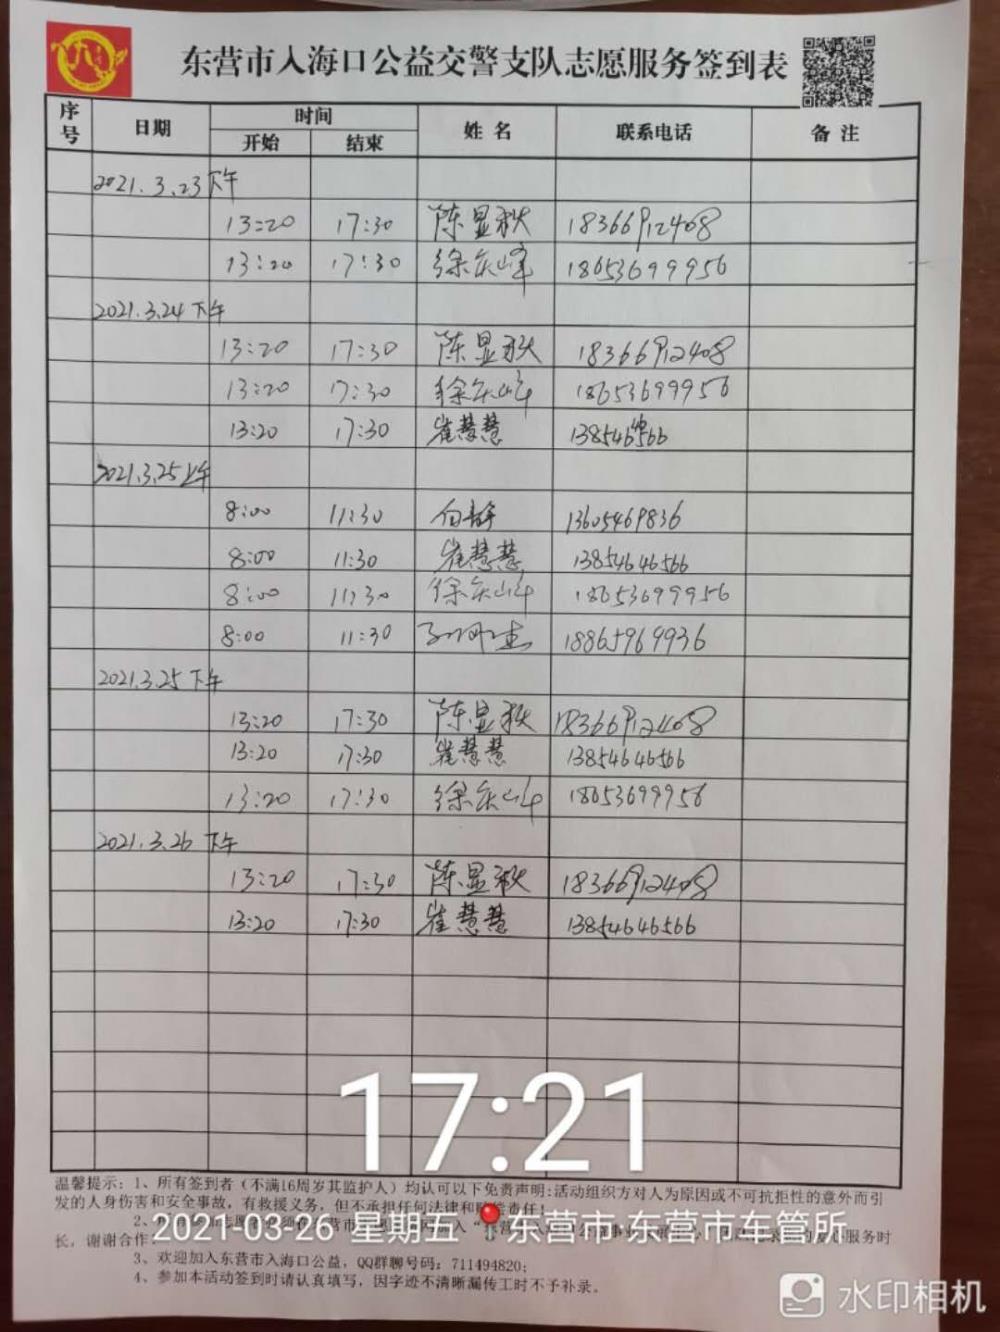 东营市入海口公益交警支队志愿服务签到表
序号 日期 时间 姓名 联系电话 备注
开始 结束
2021.3.23下午
13:20 17:30 陈显秋 18366912408
13:20 17:30 徐庆峰 18653699956
2021.3.24下午
13:20 17:30 陈显秋 18366912408
13:20 17:30 徐庆峰 18653699956
13:20 17:30 崔慧慧 13854646566
2021.3.25上午
8:00 11:30 白静 13605469836
8:00 11:30 崔慧慧 13854646566
8:00 11:30 徐庆峰 18653699956
8:00 11:30 18865969936
2021.3.25下午
13:20 17:30 陈显秋 18366912408
13:20 17:30 崔慧慧 13854646566
13:20 17:30 徐庆峰 18653699956
2021.3.26下午
13:20 17:30 陈显秋 18366912408
13:20 17:30 崔慧慧 13854646566
17:21
温馨提示:1、所有签到者(不满16周岁其监护人)均认可以下免责声明:活动组织方对人为原因或不可抗拒性的意外而引
发的人身伤害和安全事故,有救援义务,但不承担任何法律和责任!
2、
2021-03-26 星期五 东营市·东营市车管所
长,谢谢合作
3、欢迎加入东营市入海口公益,QQ群聊号码:711494820;
4、参加本活动签到时请认真填写,因字迹不清晰漏传工时不予补录。
水印相机